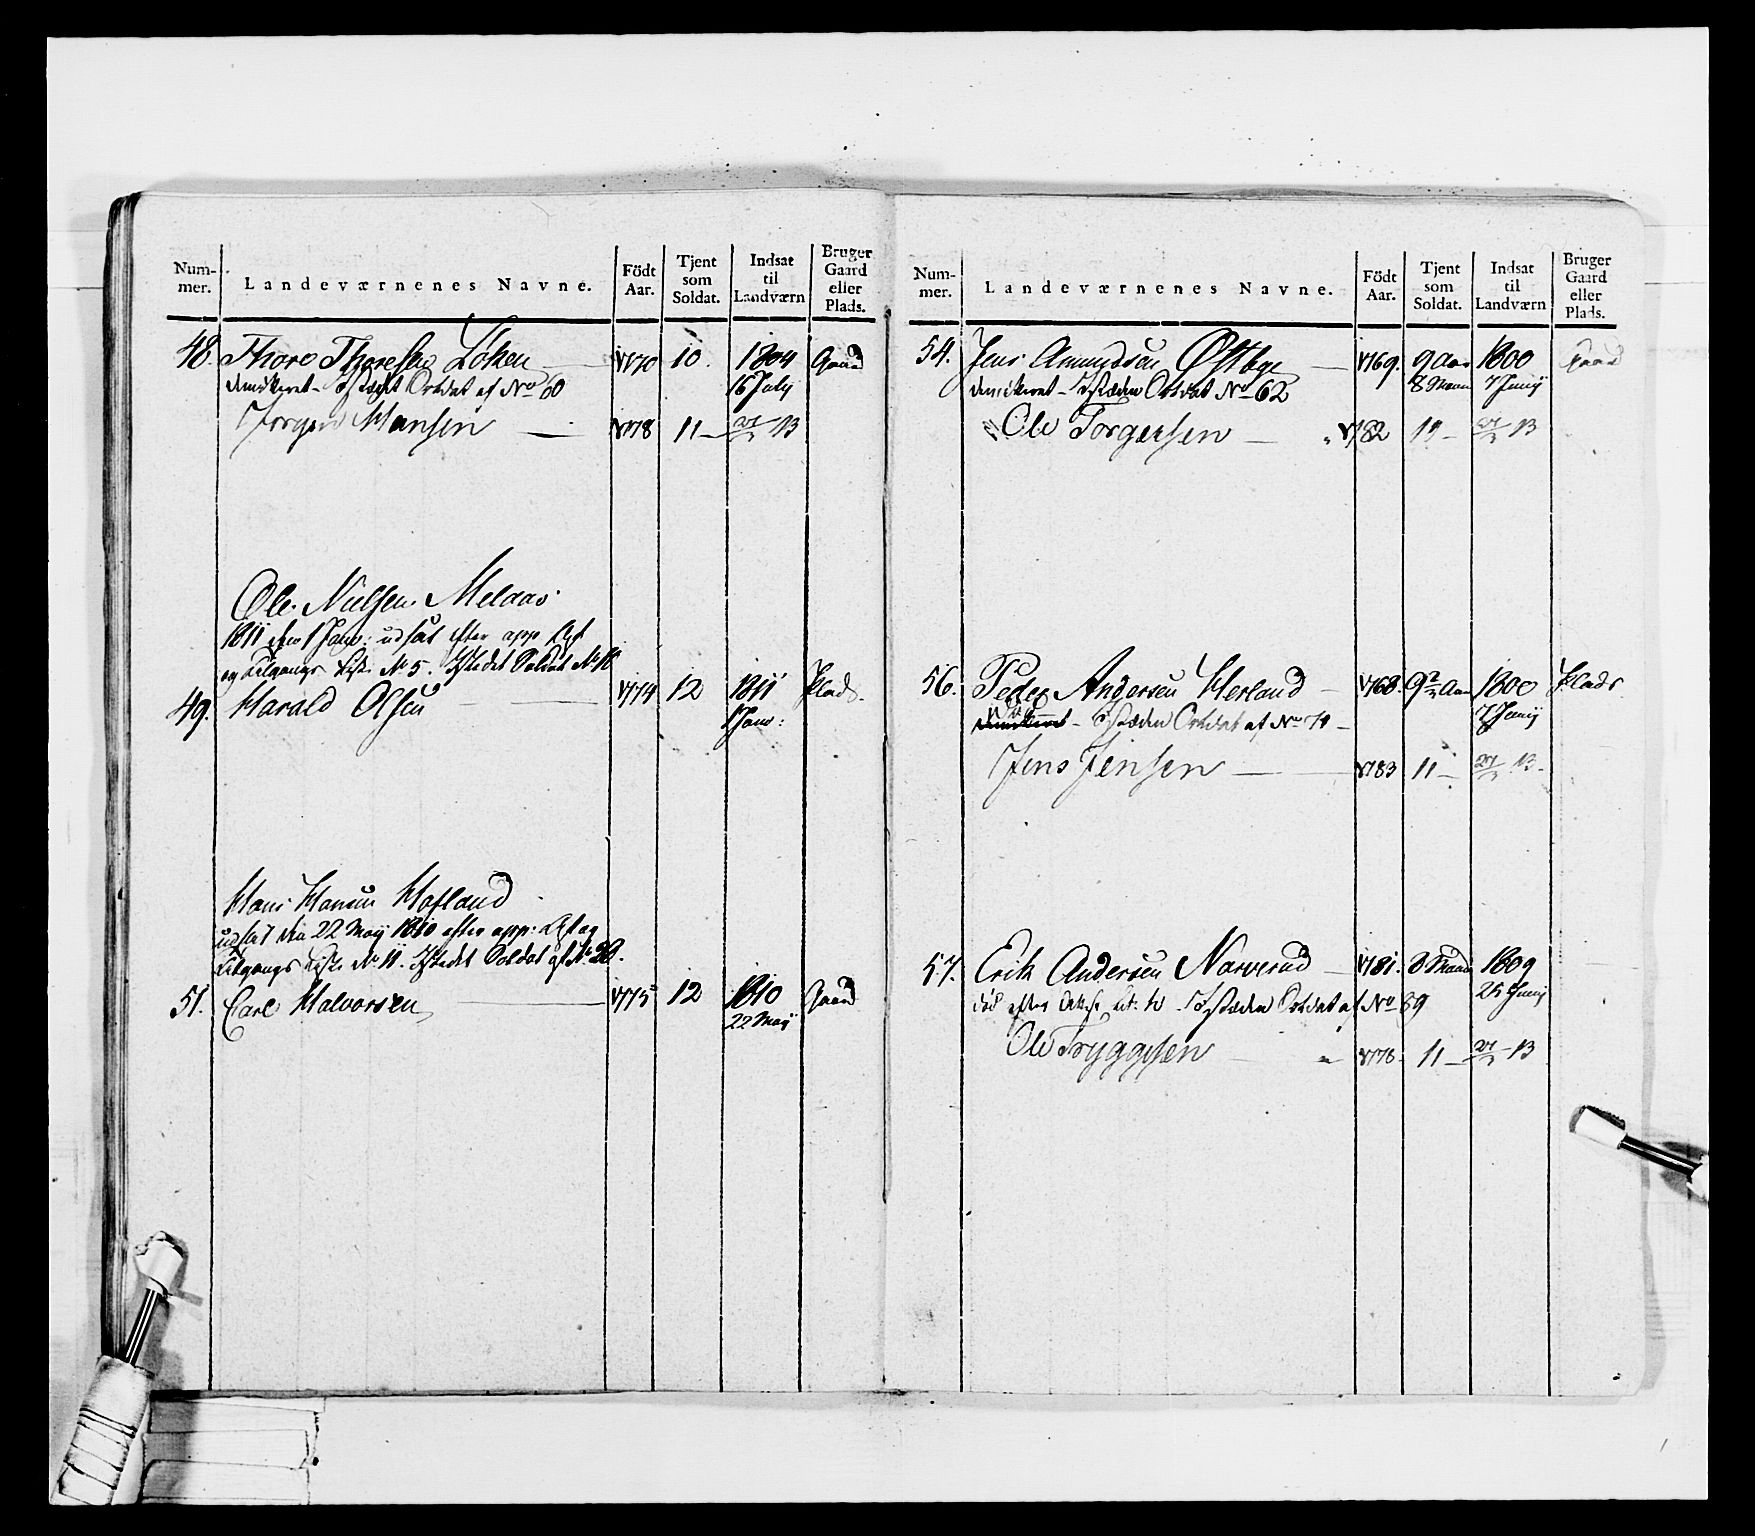 Num-
mer.
Landeværnenes Navne.
Födt
Aar.
Tjent
som
Soldat.
Indsat
til
Landværn
Bruger
Gaard
eller
Plads.
48. Thore Thoresen Löken 1770 10. 1804 Gaard
16 July
demitteret - istædet Ordat af No 60
Jörgen Hansen 1778 11 13
Ole Nielsen Melaas
1811 den 1 Janv: udsat efter app List
og Tilgangs List No 5. Istedet Soldat No 18
49. Harald Olsen 1774 12 1811 Plads.
1 Janv:
Hans Hansen Hofland
udsat den 22 May 1810 efter app: List og
Tilgangs Liste No 11. Istedet Soldat af No 20.
51. Carl Halvorsen 1775 12 1810 Gaard
22 May
Num-
mer.
Landeværnenes Navne.
Födt
Aar.
Tjent
som
Soldat.
Indsat
til
Landværn
Bruger
Gaard
eller
Plads.
54. Jens Amundsen Østbye 1769. 9 Aar 1800 Gaard
8 Maan 7 Junij
demitteret - istæden No 62
Ole Torgersen 1782 11 13
56. Peder Andersen Herland 1768. 9 Aar 1800 Plads
7 Junij
istæden af No 71
Jens Jensen 1783 11 13
57. Erik Andersen Narverud 1781. 8 Maan 1809
25 Junij
död efter istæden af No 89
Ole Tryggesen 1778 11 13